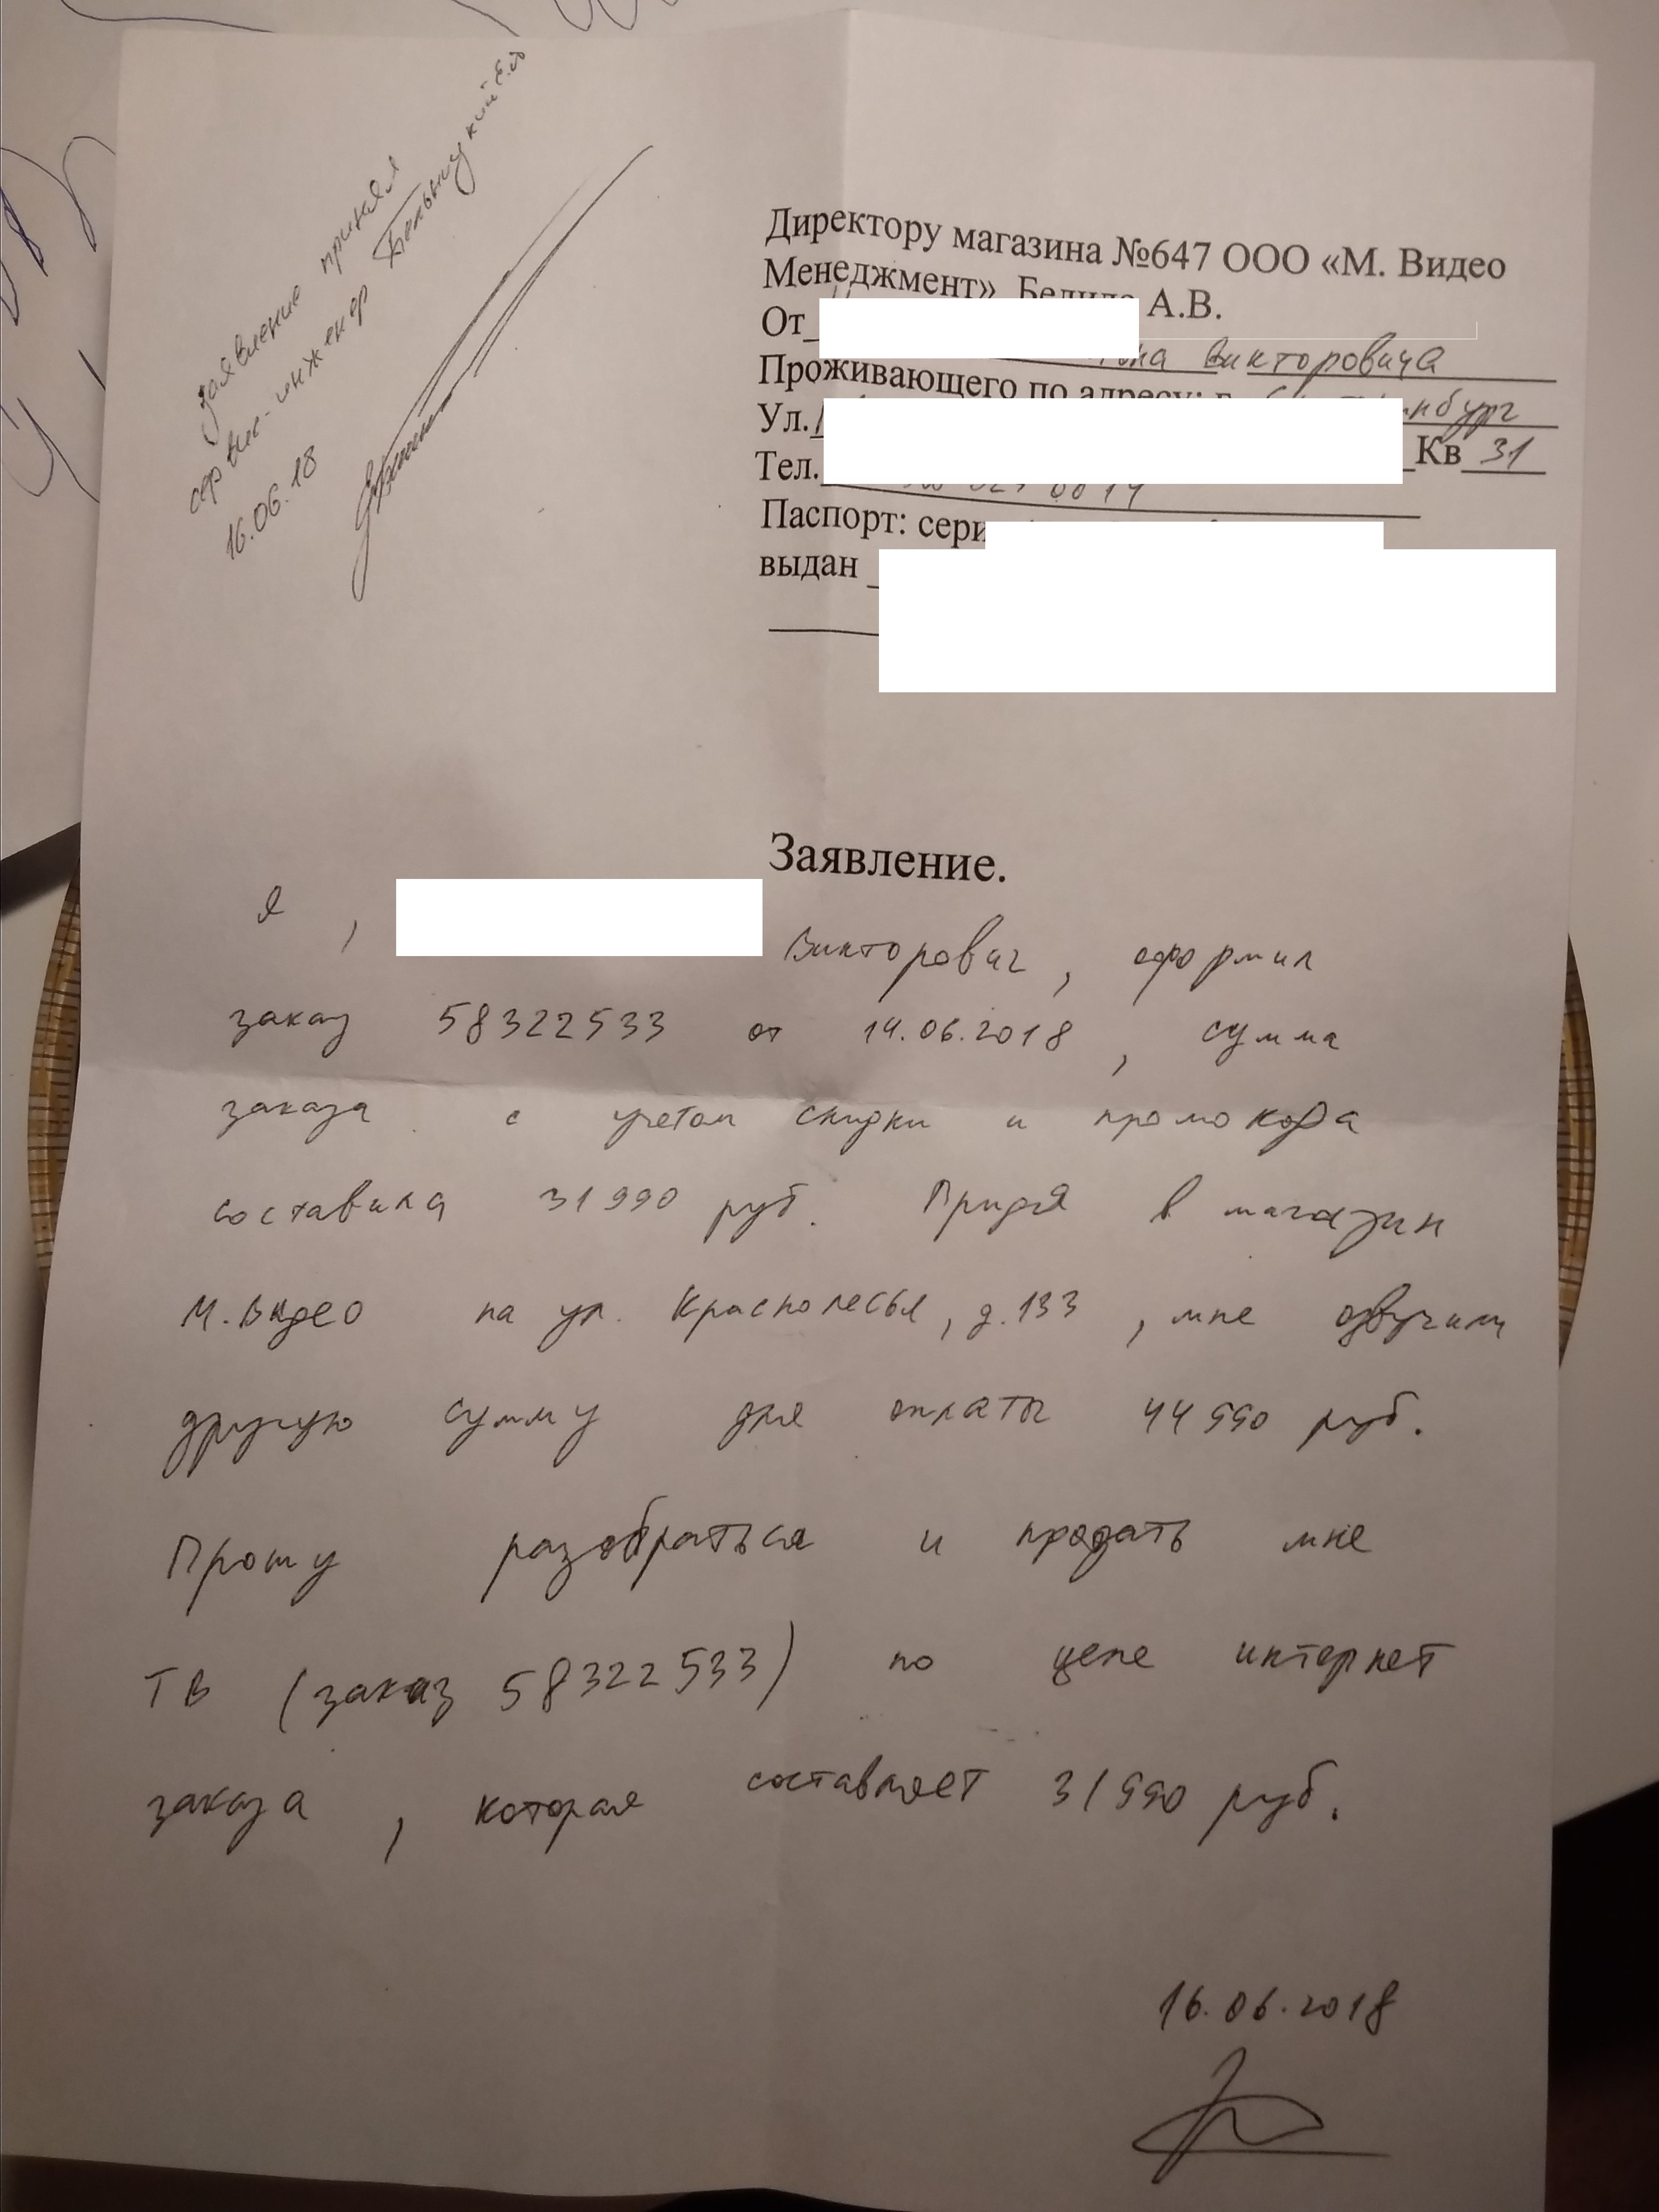 заявление принял
сервис-инженер
16.06.18
Директору магазина №647 ООО «М. Видео
Менеджмент» А.В.
От
Викторовича
Проживающего по адресу: г.
Ул.
Кв 31
Тел.
Паспорт:
выдан
Заявление.
Я, Викторович, оформил
заказ 58322533 от 14.06.2018, сумма
заказа с учетом скидки и промокода
составила 31990 руб. Придя в магазин
М.Видео на ул. Краснолесья, д.133, мне озвучили
другую сумму для оплаты 44990 руб.
Прошу разобраться и продать мне
ТВ (заказ 58322533) по цене интернет
заказа, которая составляет 31990 руб.
16.06.2018